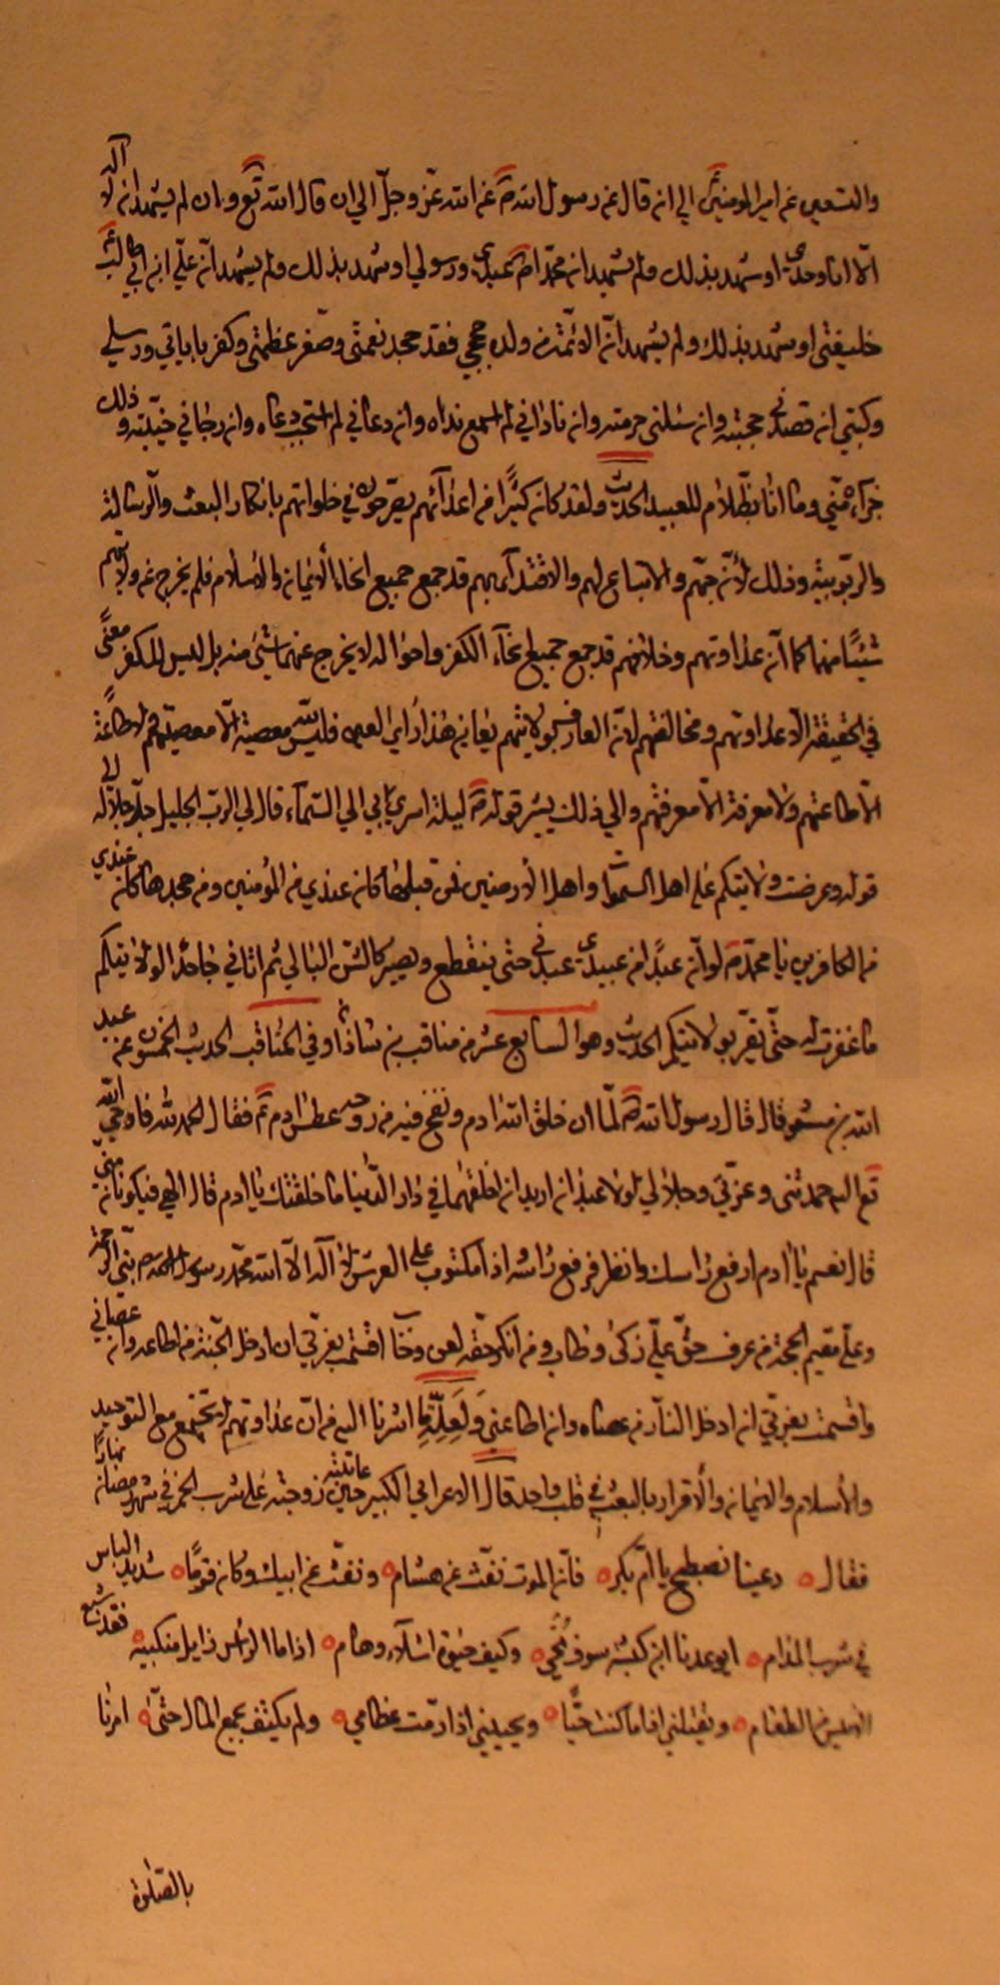 والتسعين عن امير المومنين ع الي ان قال عن رسول الله ص عن الله عز وجل الي ان قال الله تع وان لم يشهد ان لا اله
الا انا وحدي او شهد بذلك ولم يشهد ان محمدا ص عبدي ورسولي او شهد بذلك ولم يشهد ان علي ابن ابي طالب ع
خليفتي او شهد بذلك ولم يشهد ان الائمة من ولده حججي فقد جحد نعمتي وصغر عظمتي وكفر باياتي ورسلي
وكتبي ان قصدني حجبته وان سئلني حرمته وان ناداني لم اسمع نداه وان دعاني لم استجب دعاه وان رجاني خيبته وذلك
جزآءه مني وما انا بظلام للعبيد الحديث ولقد كان كثيرا من اعدآئهم يصرحون في خلواتهم بانكار البعث والرسالة
والربوبية وذلك لان حبهم والاتباع لهم والاقتدآء بهم قد جمع جميع انحاء الايمان والاسلام فلم يخرج عن ولايتهم
شيئا منهما كما ان عداوتهم وخلافهم قد جمع جميع انحآء الكفر واحواله لا يخرج عنهما شيئ منه بل ليس للكفر معنى
في الحقيقة الا عداوتهم ومخالفتهم لان العارف بولايتهم يعاين هذا راي العين فليس لله معصية الا معصيتهم ولا طاعة
الا طاعتهم ولا معرفة الا معرفتهم والي ذلك يشير قوله ص ليلة اسري بي الي السمآء قال لي الرب الجليل جل جلاله الي
قوله وعرضت ولايتكم على اهل السموات واهل الارضين فمن قبلها كان عندي من المؤمنين ومن جحدها كان عندي
من الكافرين يا محمد ص لو ان عبدا من عبيدي عبدني حتى ينقطع ويصير كالشن البالي ثم اتاني جاحدا لولايتكم
ما غفرت له حتى يقر بولايتكم الحديث وهو السابع عشر من مناقب بن شاذان وفي المناقب الحديث الخمسون عن عبد
الله بن مسعود قال قال رسول الله ص لما ان خلق الله ادم ونفخ فيه من روحه عطس ادم ع فقال الحمد لله فاوحي الله
تع اليه حمدتني وعزتي وجلالي لولا عبدان اريد ان اخلقهما في دار الدنيا ما خلقتك يا ادم قال الهي فيكونان مني
قال نعم يا ادم ارفع راسك وانظر فرفع راسه اذا مكتوب على العرش لا اله الا الله محمد رسول الله ص نبي الرحمة
وعلي مقيم الحجة من عرف حق علي زكى وطاب ومن انكر حقه لعن وخاب اقسمت بعزتي ان ادخل الجنة من اطاعه وان عصاني
واقسمت بعزتي ان ادخل النار من عصاه وان اطاعني ولعلة ما اشرنا اليه من ان عداوتهم لا تجتمع مع التوحيد
والاسلام والايمان والاقرار بالبعث في قلب واحد قال الاعرابي الكبير حين عاتبته زوجته على شرب الخمر في شهر رمضان نهارا
فقال دعينا نصطبح يا ام بكر فان الموت نفث عن هشام ونفث عن ابيك وكان قوما شديد الباس
في شرب المدام ايوعدنا ابن كبشة سوف نحيى وكيف حيوة اشلآء وهام اذا ما الراس زايل منكبيه فقد شبع
الانيس من الطعام ويقتلني اذا ما كنت حيا ويحييني اذا رمت عظامي ولم يكتف بجمع المال حتى امرنا
بالصلوة